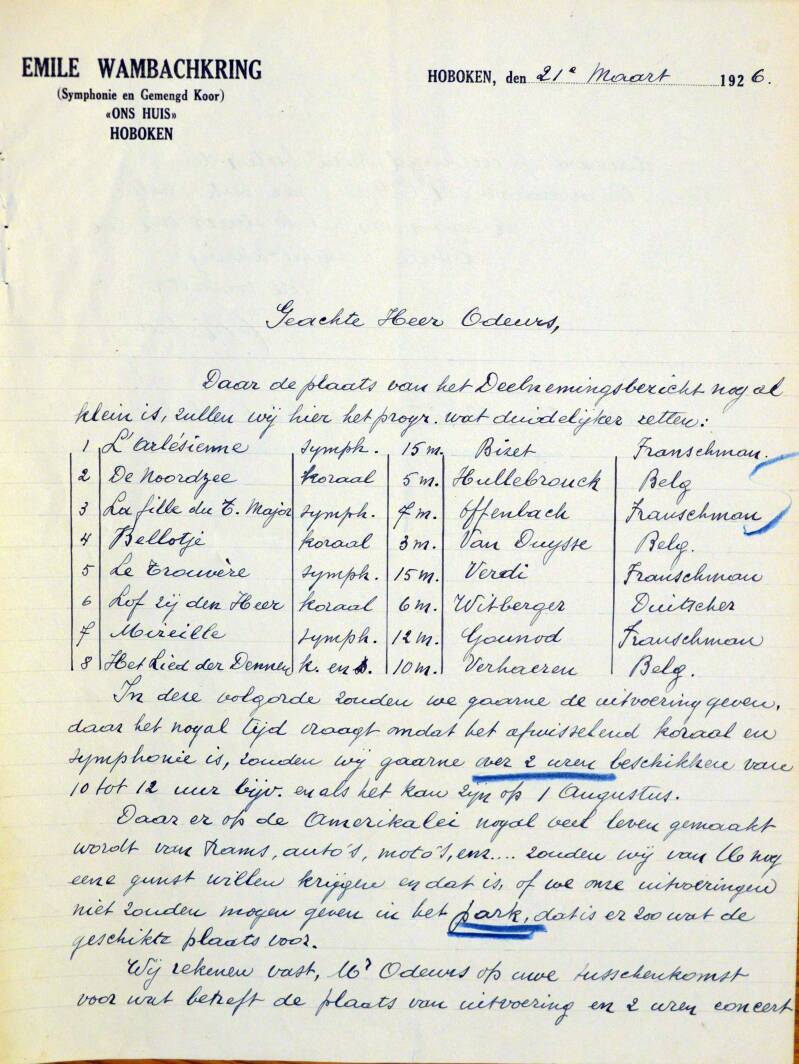 EMILE WAMBACHKRING
(Symphonie en Gemengd Koor)
«ONS HUIS»
HOBOKEN
HOBOKEN, den 21e Maart 1926.
Geachte Heer Odeurs,
Daar de plaats van het Deelnemingsbericht nog al
klein is, zullen wij hier het progr. wat duidelijker zetten:
1 L'arlésienne symph. 15 m. Bizet Franschman.
2 De Noordzee koraal 5 m. Hullebrouck Belg
3 La fille du T. Major symph. 7 m. Offenbach Franschman
4 Bellotje koraal 3 m. Van Duysse Belg.
5 Le Trouvère symph. 15 m. Verdi Franschman
6 Lof zij den Heer koraal 6 m. Witberger Duitscher
7 Mireille symph. 12 m. Gounod Franschman
8 Het Lied der Dennen k. en s. 10 m. Verhaeren Belg.
In deze volgorde zouden we gaarne de uitvoering geven,
daar het nogal tijd vraagt omdat het afwisselend koraal en
symphonie is, zouden wij gaarne over 2 uren beschikken van
10 tot 12 uur bijv. en als het kan zijn op 1 Augustus.
Daar er op de Amerikalei nogal veel leven gemaakt
wordt van trams, auto's, moto's, enz.... zouden wij van U nog
eene gunst willen krijgen en dat is, of we onze uitvoeringen
niet zouden mogen geven in het park, dat is er zoo wat de
geschikte plaats voor.
Wij rekenen vast, Mr Odeurs op uwe tusschenkomst
voor wat betreft de plaats van uitvoering en 2 uren concert